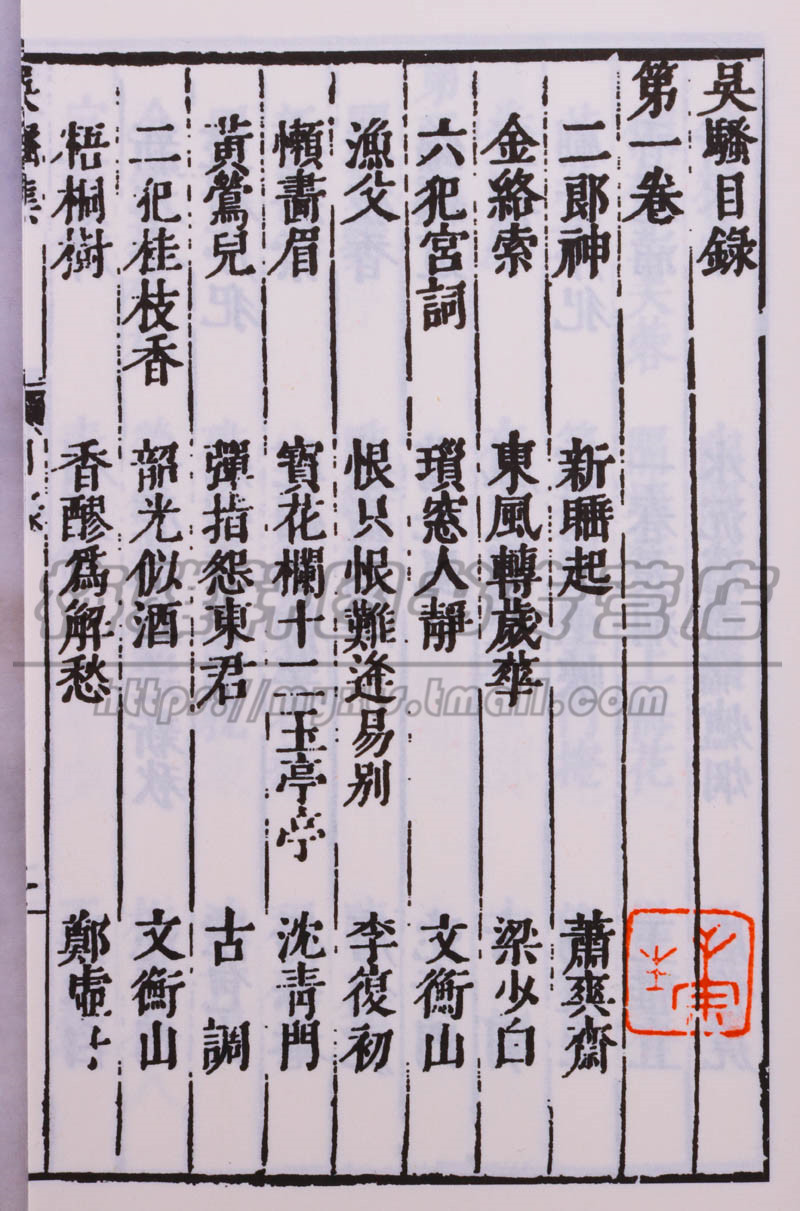 吳騷目錄
第一卷
二郎神　新睡起　蕭爽齋
金絡索　東風轉歲華　梁少白
六犯宮詞　瑣窓人靜　文衡山
漁父　恨只恨難逢易別　李復初
懶畵眉　寳花欄十二玉亭亭　沈青門
黃鶯兒　彈指怨東君　古調
二犯桂枝香　韶光似酒　文衡山
梧桐樹　香醪爲解愁　鄭虛
http://myhxs.tmall.com